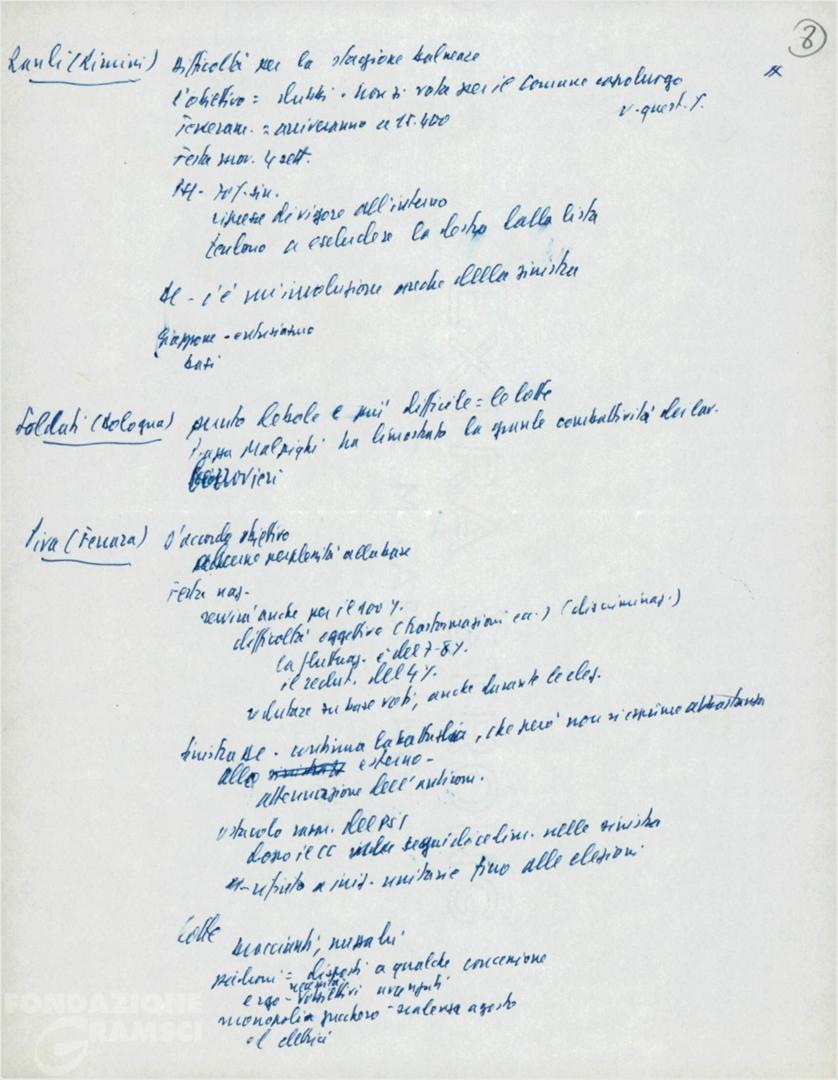 8
Ranli (Rimini) Difficoltà per la stagione balneare
l'obiettivo = dubbi - non si vota per il comune capoluogo
v. quest. %.
Tesseram. = arriveranno a 15.400
Festa prov. 4 sett.
PSI - 70% sin.
riprese di vigore all'interno
tendono a escludere la destra dalla lista
DC - c'è un'involuzione anche della sinistra
Giappone - entusiasmo
basi
Soldati (Bologna) punto debole e più difficile = le lotte
Piazza Malpighi ha dimostrato la grande combattività dei lav.
ferrovieri
Piva (Ferrara) D'accordo obiettivo
alcune perplessità alla base
Festa naz.
servirà anche per il 100%.
difficoltà oggettive (trasformazioni ecc.) (discriminaz.)
la fluttuaz. è del 7-8%.
il reclut. del 4%.
valutare su base voti, anche durante le elez.
Sinistra DC - continua la battaglia, che però non si esprime abbastanza
all' esterno -
attenuazione dell'anticom.
ostacolo DEL PSI
dopo il CC nella sinistra
rifiuto a iniz. unitarie fino alle elezioni
Lotte
braccianti,
padroni = disposti a qualche concessione
ergo - necessità obiettivi avanzati
monopolio zucchero - scadenza agosto
el. elettrici
FONDAZIONE
GRAMSCI